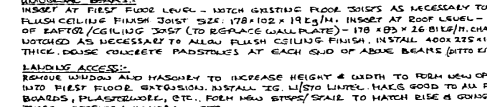 INSERT AT FIRST FLOOR LEVEL - NOTCH EXISTING FLOOR JOISTS AS NECESSARY TO
FLUSH CEILING FINISH JOIST SIZE: 178 x 102 x 19 kg/m. INSERT AT ROOF LEVEL -
OF RAFTER/CEILING JOIST (TO REPLACE WALL PLATE) - 178 x 89 x 26 kg/m. CHA
NOTCHED AS NECESSARY TO ALLOW FLUSH CEILING FINISH. INSTALL 400 x 225 x 1
THICK. DENSE CONCRETE PADSTONES AT EACH END OF ABOVE BEAMS (DITTO KI
LANDING ACCESS:-
REMOVE WINDOW AND MASONRY TO INCREASE HEIGHT & WIDTH TO FORM NEW OP
INTO FIRST FLOOR EXTENSION. INSTALL IG. L1/S70 LINTEL. MAKE GOOD TO ALL F
BOARDS, PLASTERWORK, ETC. FORM NEW STEPS/STAIR TO MATCH RISE & GOING